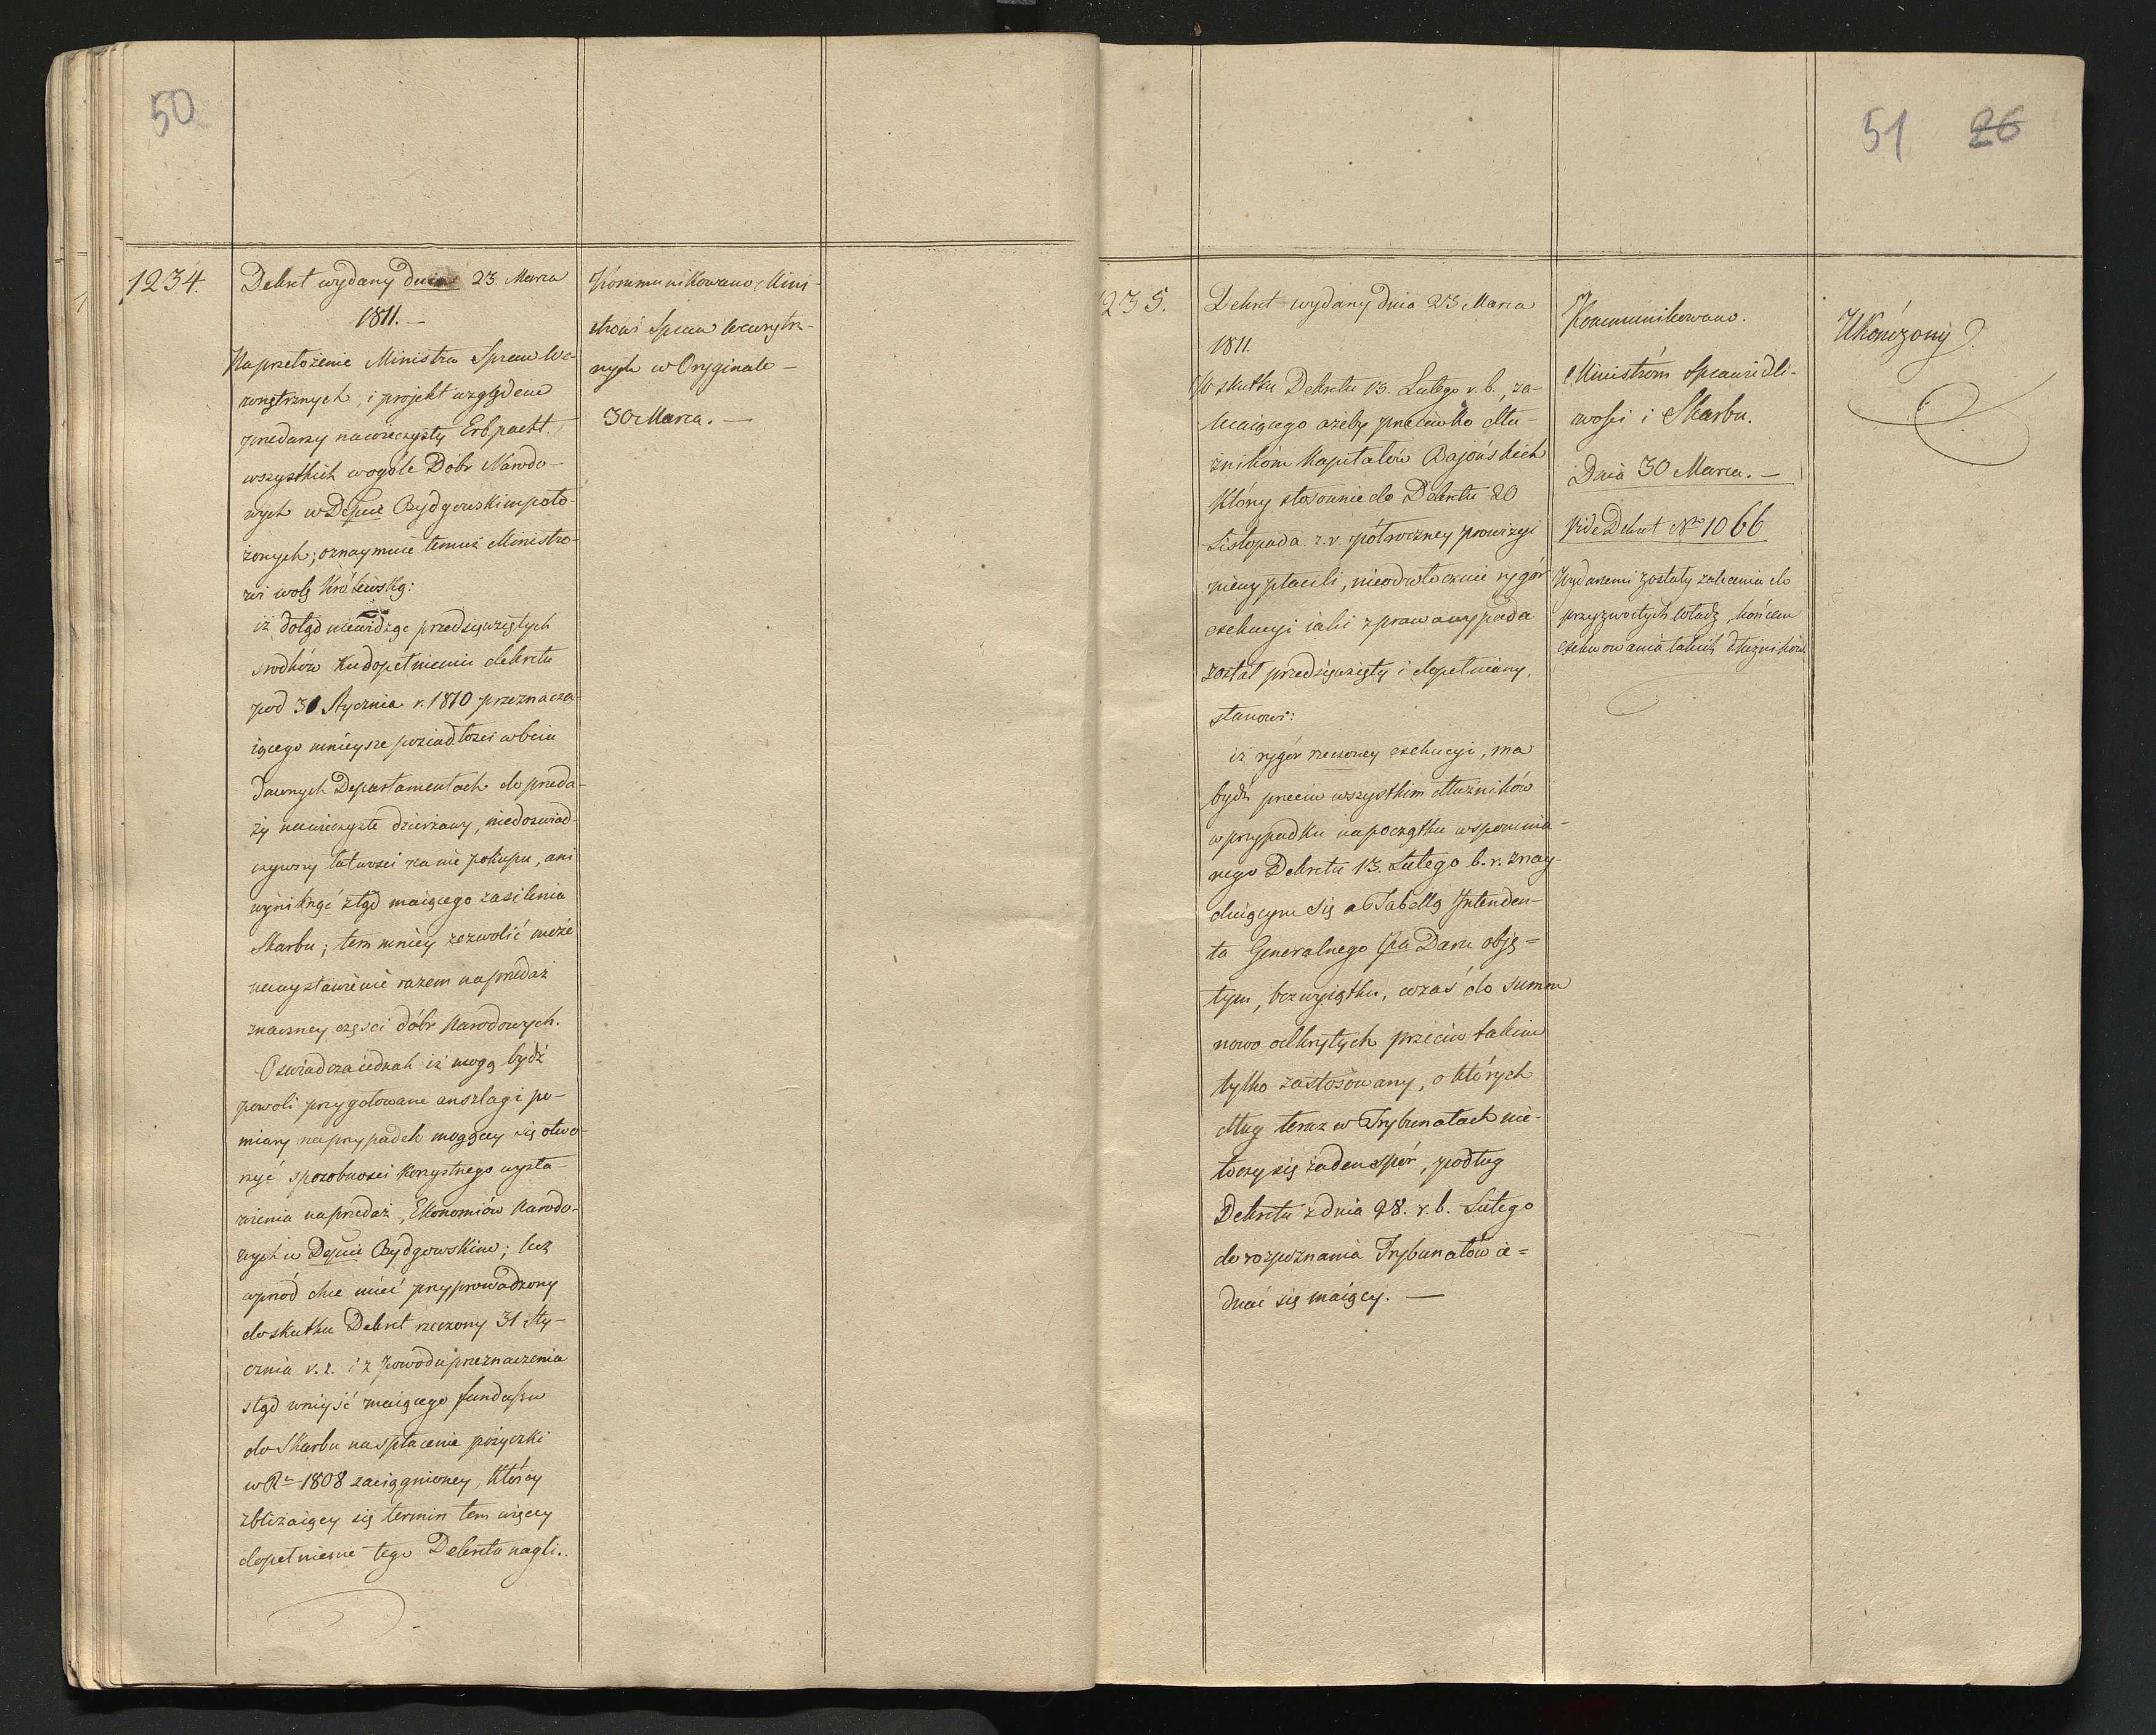 50
1234.
Dekret wydany dnia 23. Marca
1811. —
Na przełożenie Ministra Spraw We-
wnętrznych, i projekt względem
przedarzy nawieczysty Erbpacht.
wszystkich wogóle Dóbr Narodo-
wych w Depcie Bydgowskim poło-
żonych; oznaymuie temuż Ministro-
wi wolą Królewską:
iż dotąd niewidząc przedsięwziętych
srodków Kudopełnieniu dekretu
pod 31 Stycznia r. 1810 przeznacza-
iącego mnieysze posiadłosci wbciu
dawnych Departamentach do przeda-
ży nawieczyste dzierżawy, niedoswiad-
czywszy łatwosci na nie pokupu, ani
wyniknąć ztąd maiącego zasilenia
Skarbu; tem mniey zezwolić może
na wystawienie razem naprzedaż
znaczney częsci dóbr Narodowych.
Oswiadcza iednak iż mogą bydź
powoli przygotowane anszlagi po-
miary naprzypadek mogącey się otwo-
rzyć sposobnosci Korzystnego wysta-
wienia naprzedaż, Ekonomiów Narodo-
wych w Depcie Bydgowskim; lecz
wprzód chce mieć przyprowadzony
do skutku Dekret rzeczony 31 Sty-
cznia r. z. i z powodu przeznaczenia
stąd wniyść maiącego funduszu
do Skarbu na spłacenie pożyczki
w Ru 1808 zaciągnioney, którey
zbliżaiący się termin tem więcey
dopełnienie tego Dekretu nagli.
Kommunikowano Mini-
strowi Spraw Wewnętrz-
nych w Oryginale —
30 Marca. —
51 26
235.
Dekret wydany dnia 23 Marca
1811.
W skutku Dekretu 13. Lutego r. b., za-
lecaiącego ażeby przeciwko dłu-
żnikóm Kapitałów Bajońskich
Którzy stosownie do Dekretu 20
Listopada z. r. półroczney prowizyi
niewypłacili, nieodwłocznie rygór
exekucyi iaki z prawa wypada
został przedsięwzięty i dopełniany,
stanowi:
iż rygór rzeczoney exekucyi, ma
bydź przeciw wszystkim dłużników
w przypadku napoczątku wspomnia-
nego Dekretu 13. Lutego b. r. znay-
duiącym się a Tabellą Intenden-
ta Generalnego Pa Daru obję-
tym, bez wyiątku, wzaś do summ
nowo odkrytych przeciw takim
tylko zastosowany, o których
dług teraz w Trybunałach nie-
toczy się żaden spór, podług
Dekretu z dnia 28. r. b. Lutego
do rozpoznania Trybunałów ie-
dnać się maiący. —
Kommunikowano.
Ministróm Sprawiedli-
wosci i Skarbu.
Dnia 30 Marca. —
Vide Dekret No 1066
Wydanemi zostały zalecenia do
przyzwoitych Władz, końcem
exekwowania takich dłużników
Ukończony